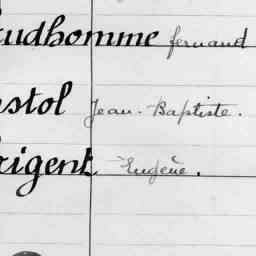 rudhomme fernand
stol Jean-Baptiste.
rigent Eugène.